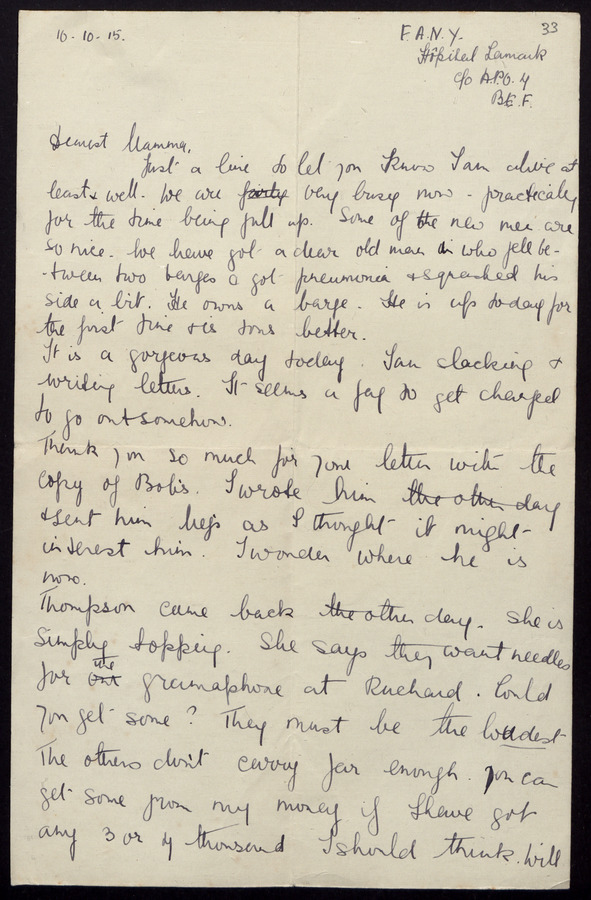 10-10-15.
F.A.N.Y. 33
Hôpital Lamark
c/o A.P.O. 4
B.E.F.
Dearest Mamma,
Just a line to let you know I am alive at
least & well. We are fairly very busy now - practically
for the time being full up. Some of the new men are
so nice. We have got a dear old man in who fell be-
-tween two barges & got pneumonia & squashed his
side a bit. He owns a barge. He is up today for
the first time & is tons better.
It is a gorgeous day today. I am slacking &
writing letters. It seems a fag to get changed
to go out somehow.
Thank you so much for your letter with the
copy of Bob's. I wrote him the other day
& sent him as I thought it might
interest him. I wonder where he is
now.
Thompson came back the other day. She is
simply topping. She says they want needles
for the gramaphone at Ruchard. Could
you get some? They must be the loudest
The others don't carry far enough. You can
get some from my money if I have got
any 3 or 4 thousand I should think. Will